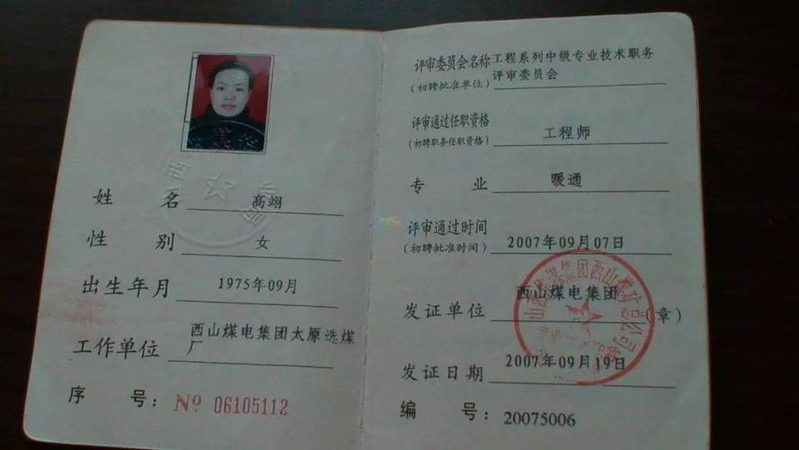 姓 名 高翊
性 别 女
出生年月 1975年09月
工作单位 西山煤电集团太原选煤
厂
序 号: Nº 06105112
评审委员会名称 工程系列中级专业技术职务
(初聘批准单位) 评审委员会
评审通过任职资格
(初聘职务任职资格) 工程师
专 业 暖通
评审通过时间
(初聘批准时间) 2007年09月07日
发证单位 西山煤电集团 (章)
发证日期 2007年09月19日
编 号: 20075006